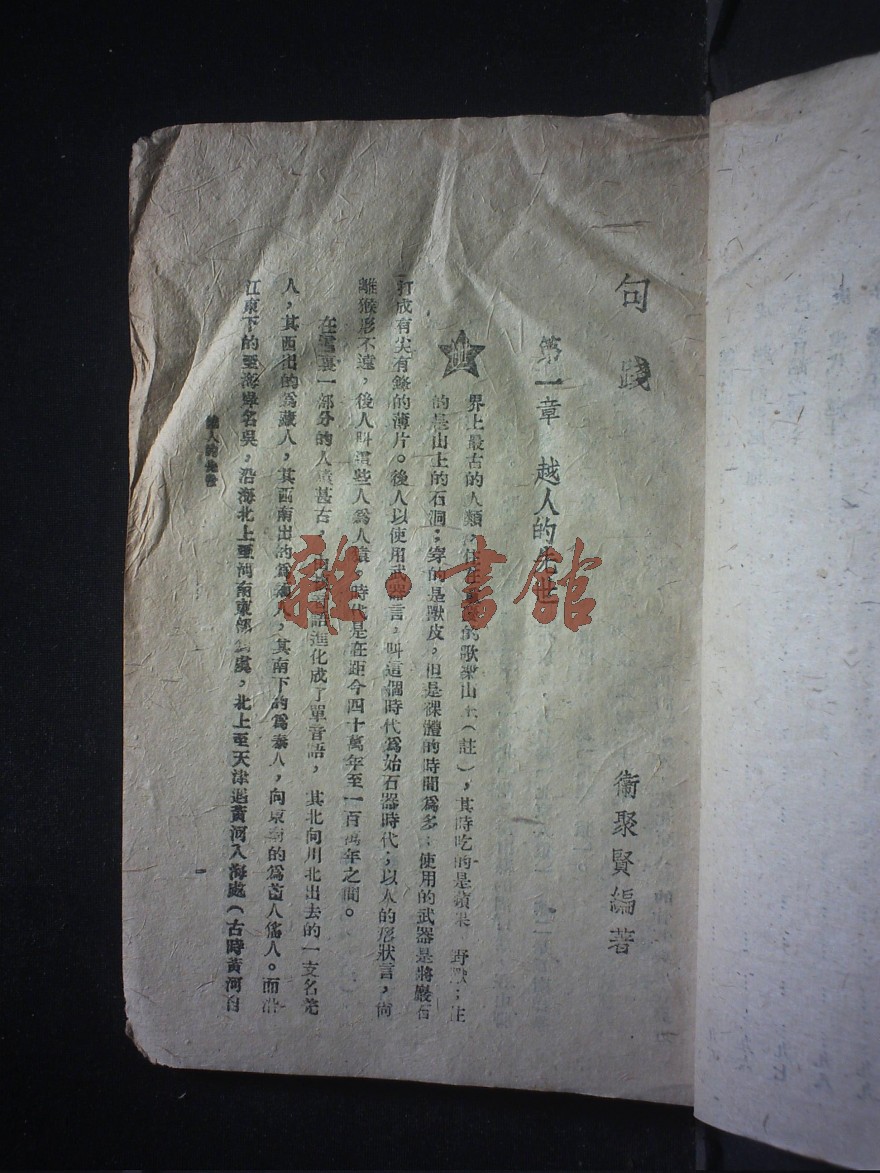 句踐
衞聚賢編著
第一章 越人的先世
世界上最古的人類,住在的歌樂山上(註),其時吃的是蘋果 野獸;住
的是山上的石洞;穿的是獸皮,但是裸體的時間爲多;使用的武器是將巖石
打成有尖有鋒的薄片。後人以使用武器言,叫這個時代爲始石器時代;以人的形狀言,尙
離猴形不遠,後人叫這些人爲人猿。時代是在距今四十萬年至一百萬年之間。
在這裏一部分的人猿甚古,由音語進化成了單音語,其北向川北出去的一支名羌
人,其西出的爲藏人,其西南出的爲人,其南下的爲泰人,向東南的爲苗人傜人。而沿
江東下的至海岸名吳,沿海北上至河南東部爲虞,北上至天津遇黃河入海處(古時黃河自
越人的先世
雜·書館